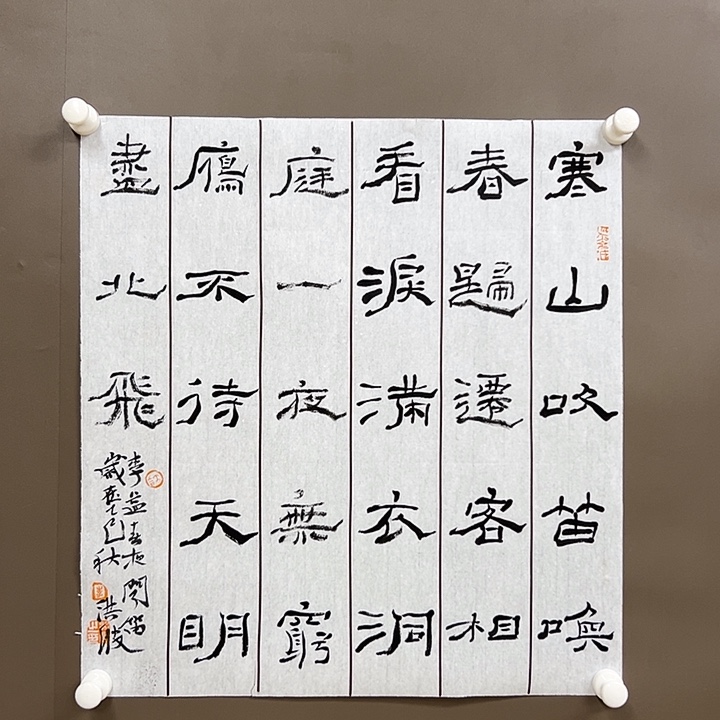 寒山吹笛喚
春歸遷客相
看淚滿衣洞
庭一夜無窮
鴈不待天明
盡北飛
李益春夜聞笛
歲在乙巳秋洪